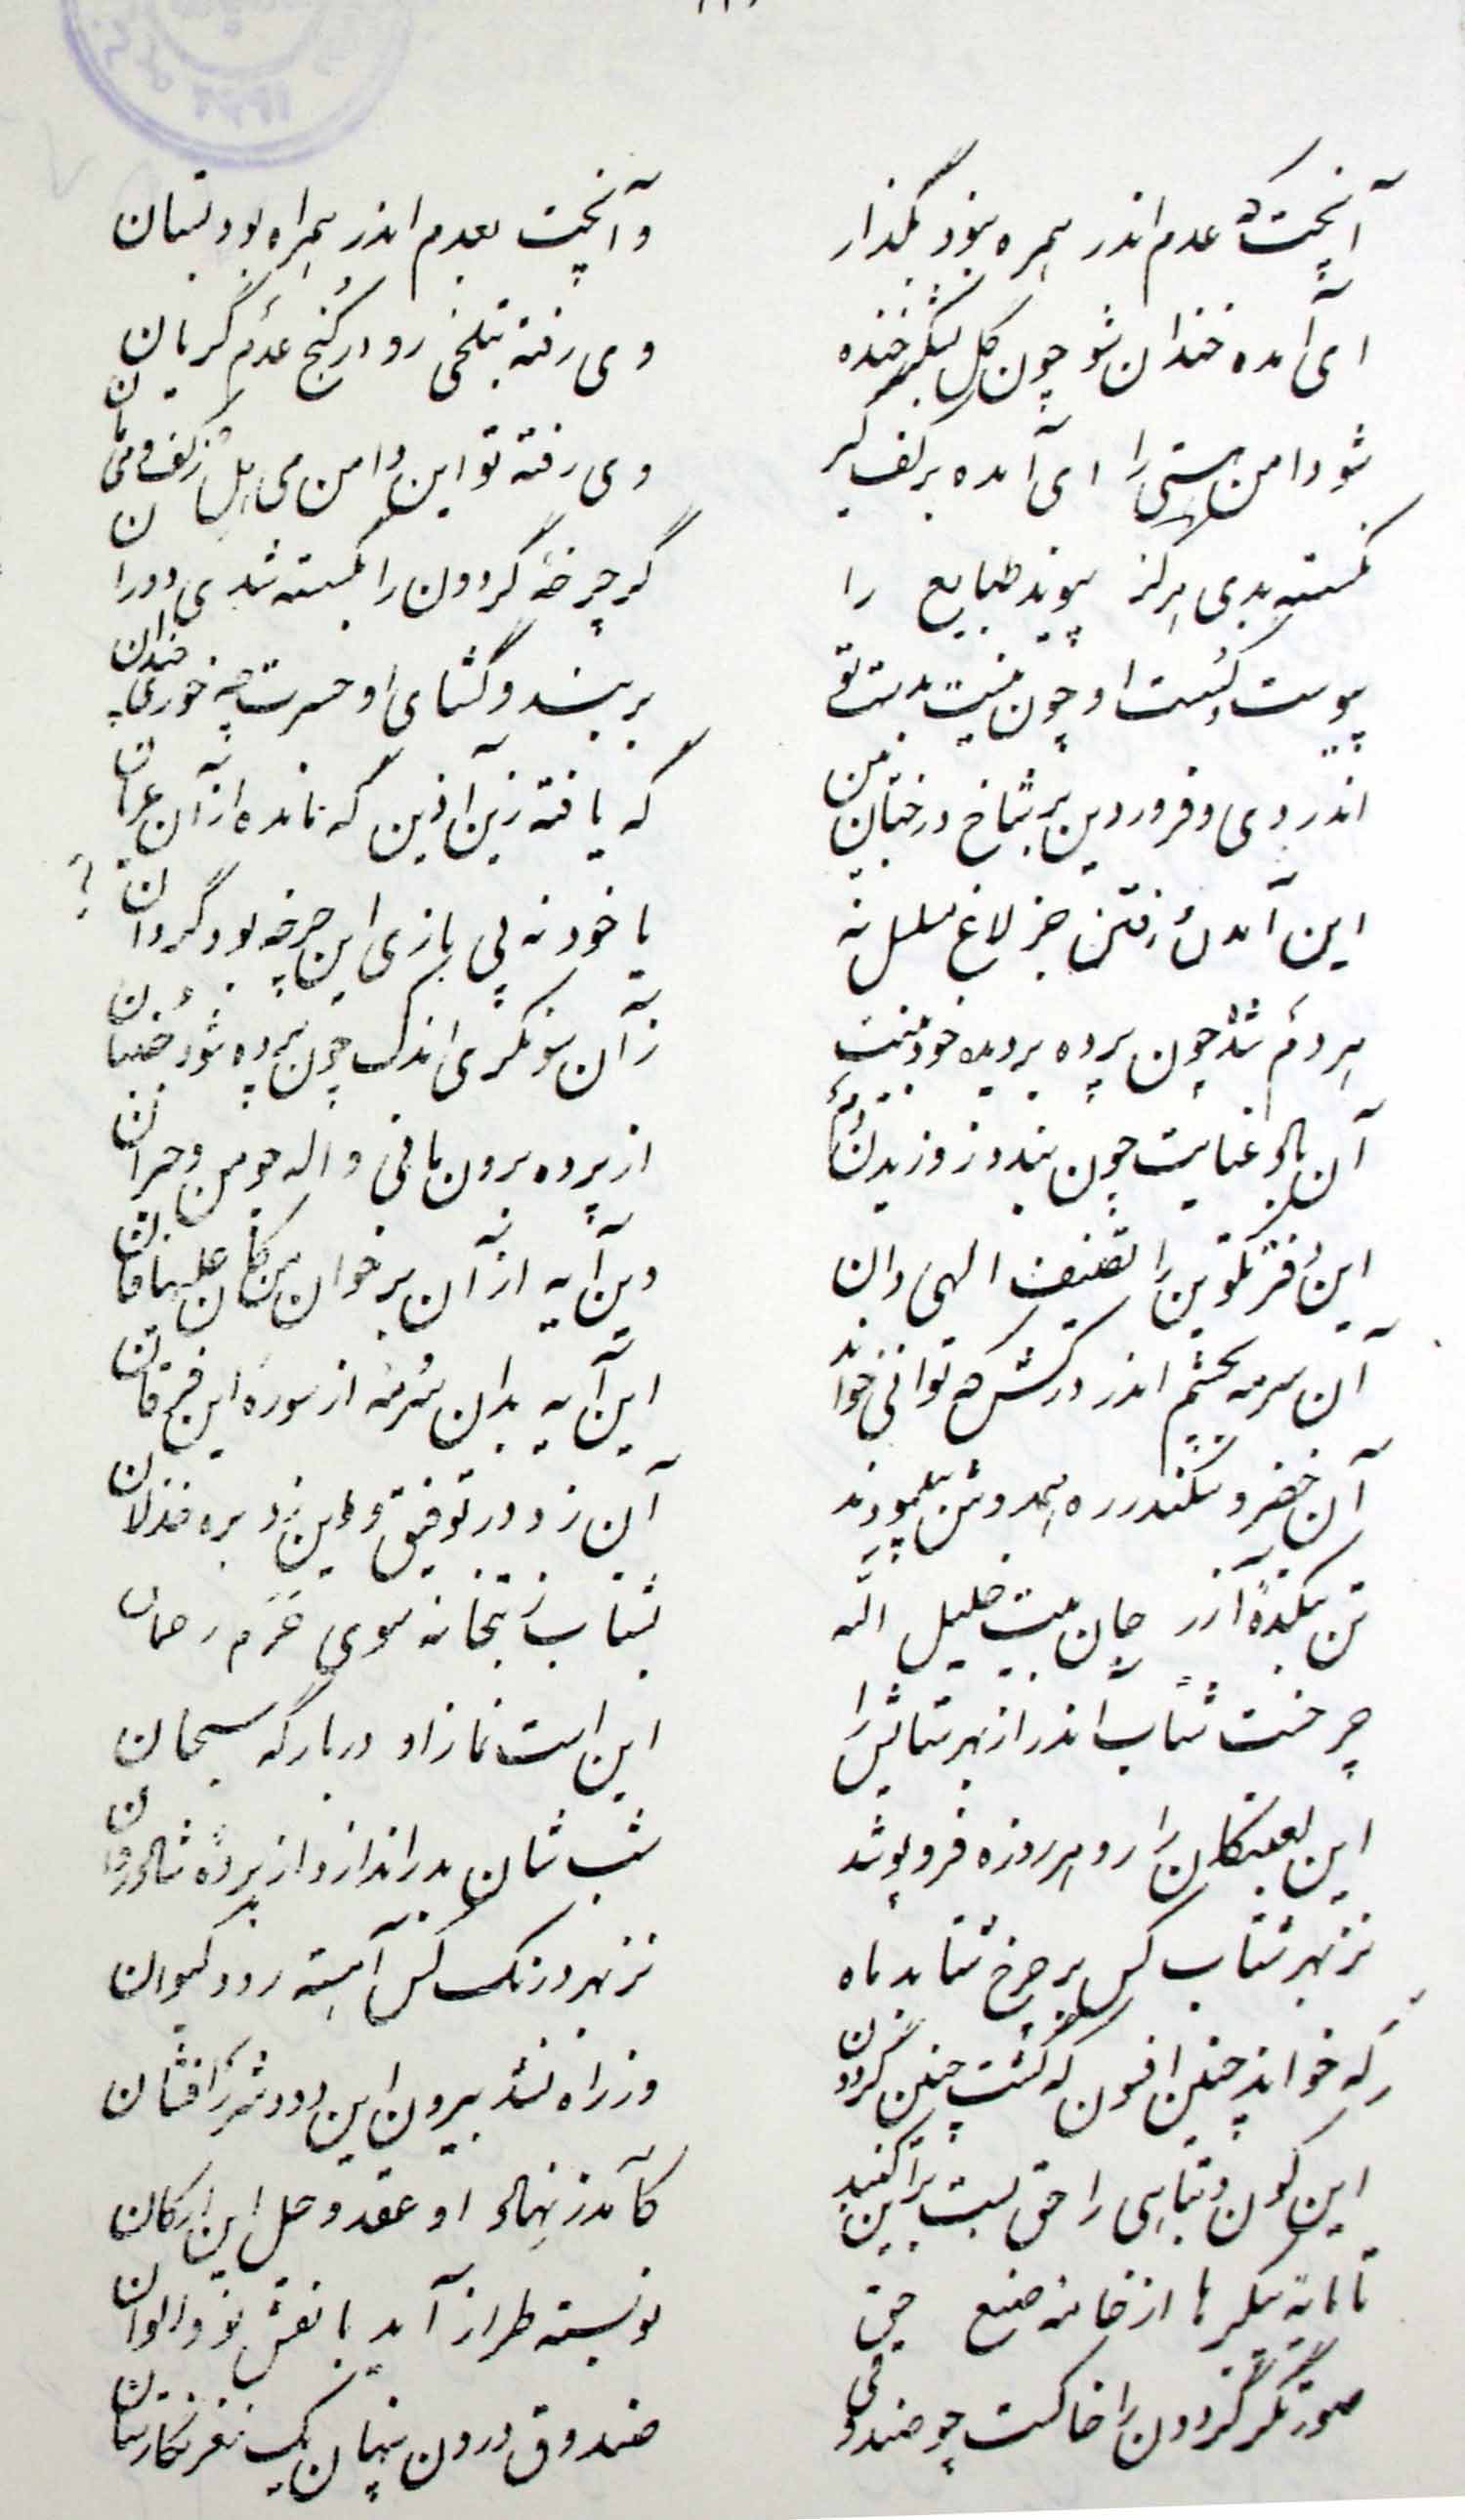 آنچت به عدم اندر همره نبود بگذار وآنچت بعدم اندر همراه بود بستان
ای آمده خندان شو چون گل بشکر خنده وی رفته بتلخی رو در کنج عدم گریان
شو دامن هستی را ای آمده بر کف گیر وی رفته تو این دامن می هل ز کف و میمان
نگسته بدی هرگز پیوند طبایع را گر چرخهٔ گردون را بگسسته شدی دوران
پیوست و گسست او چون نیست بدست تو بر بند و گشای او حسرت چه خوری چندان
اندر دی و فروردین بر شاخ درختان بین که یافته زین آذین که مانده از آن عریان
این آمدن و رفتن جز لاغ مسلسل نه یا خود نه پی بازی این چرخه بود گردان ؟
هر دم شد چون پرده بر دیده خود بینت زآن سو نگری اندک چون پرده شود خنبان
آن باد عنایت چون بندد ز وزیدن دم از پرده برون مانی واله چو من و حیران
این دفتر تکوین را تصنیف الهی دان وین آیه از آن بر خوان من کان علیها فان
آن سرمه بچشم اندر درکش که توانی خواند این آیه بدان سرمه از سورهٔ این فرقان
آن خضر و سکندر ره همدوش بپیمودند آن زد در توفیق و این زد بره خذلان
تن بتکدهٔ آزر جان بیت خلیل الله بشتاب ز بتخانه سوی حرم رحمان
چرخست شتاب اندر از بهر ستایش را این است نماز او در بارگه سبحان
این لعبتکان را رو هر روزه فرو پوشد شب شان بدر اندازد از پردهٔ شادروان
نز بهر شتاب کس بر چرخ شتابد ماه نز بهر درنگ کس آهسته رود کیوان
که خواند چنین افسون که گشت چنین گردون وز راه نشد بیرون این دود شرر افشان
این کون و تباهی را حق بست بر این گنبد کآمد ز نهاد او عقد و حل این ارکان
تا مایهٔ پیکرها از خانه صنع حق نو بسته طراز آید با نقش نو و الوان
صورتگر گردون را خاکست چو صندوقی صندوق درون پنهان یک نغز نگارستان